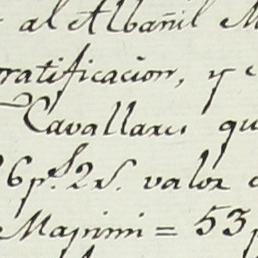 al Albañil M
ratificacion, y
Cavallares qu
26p.s 2r.s valor
Mapimi = 53p